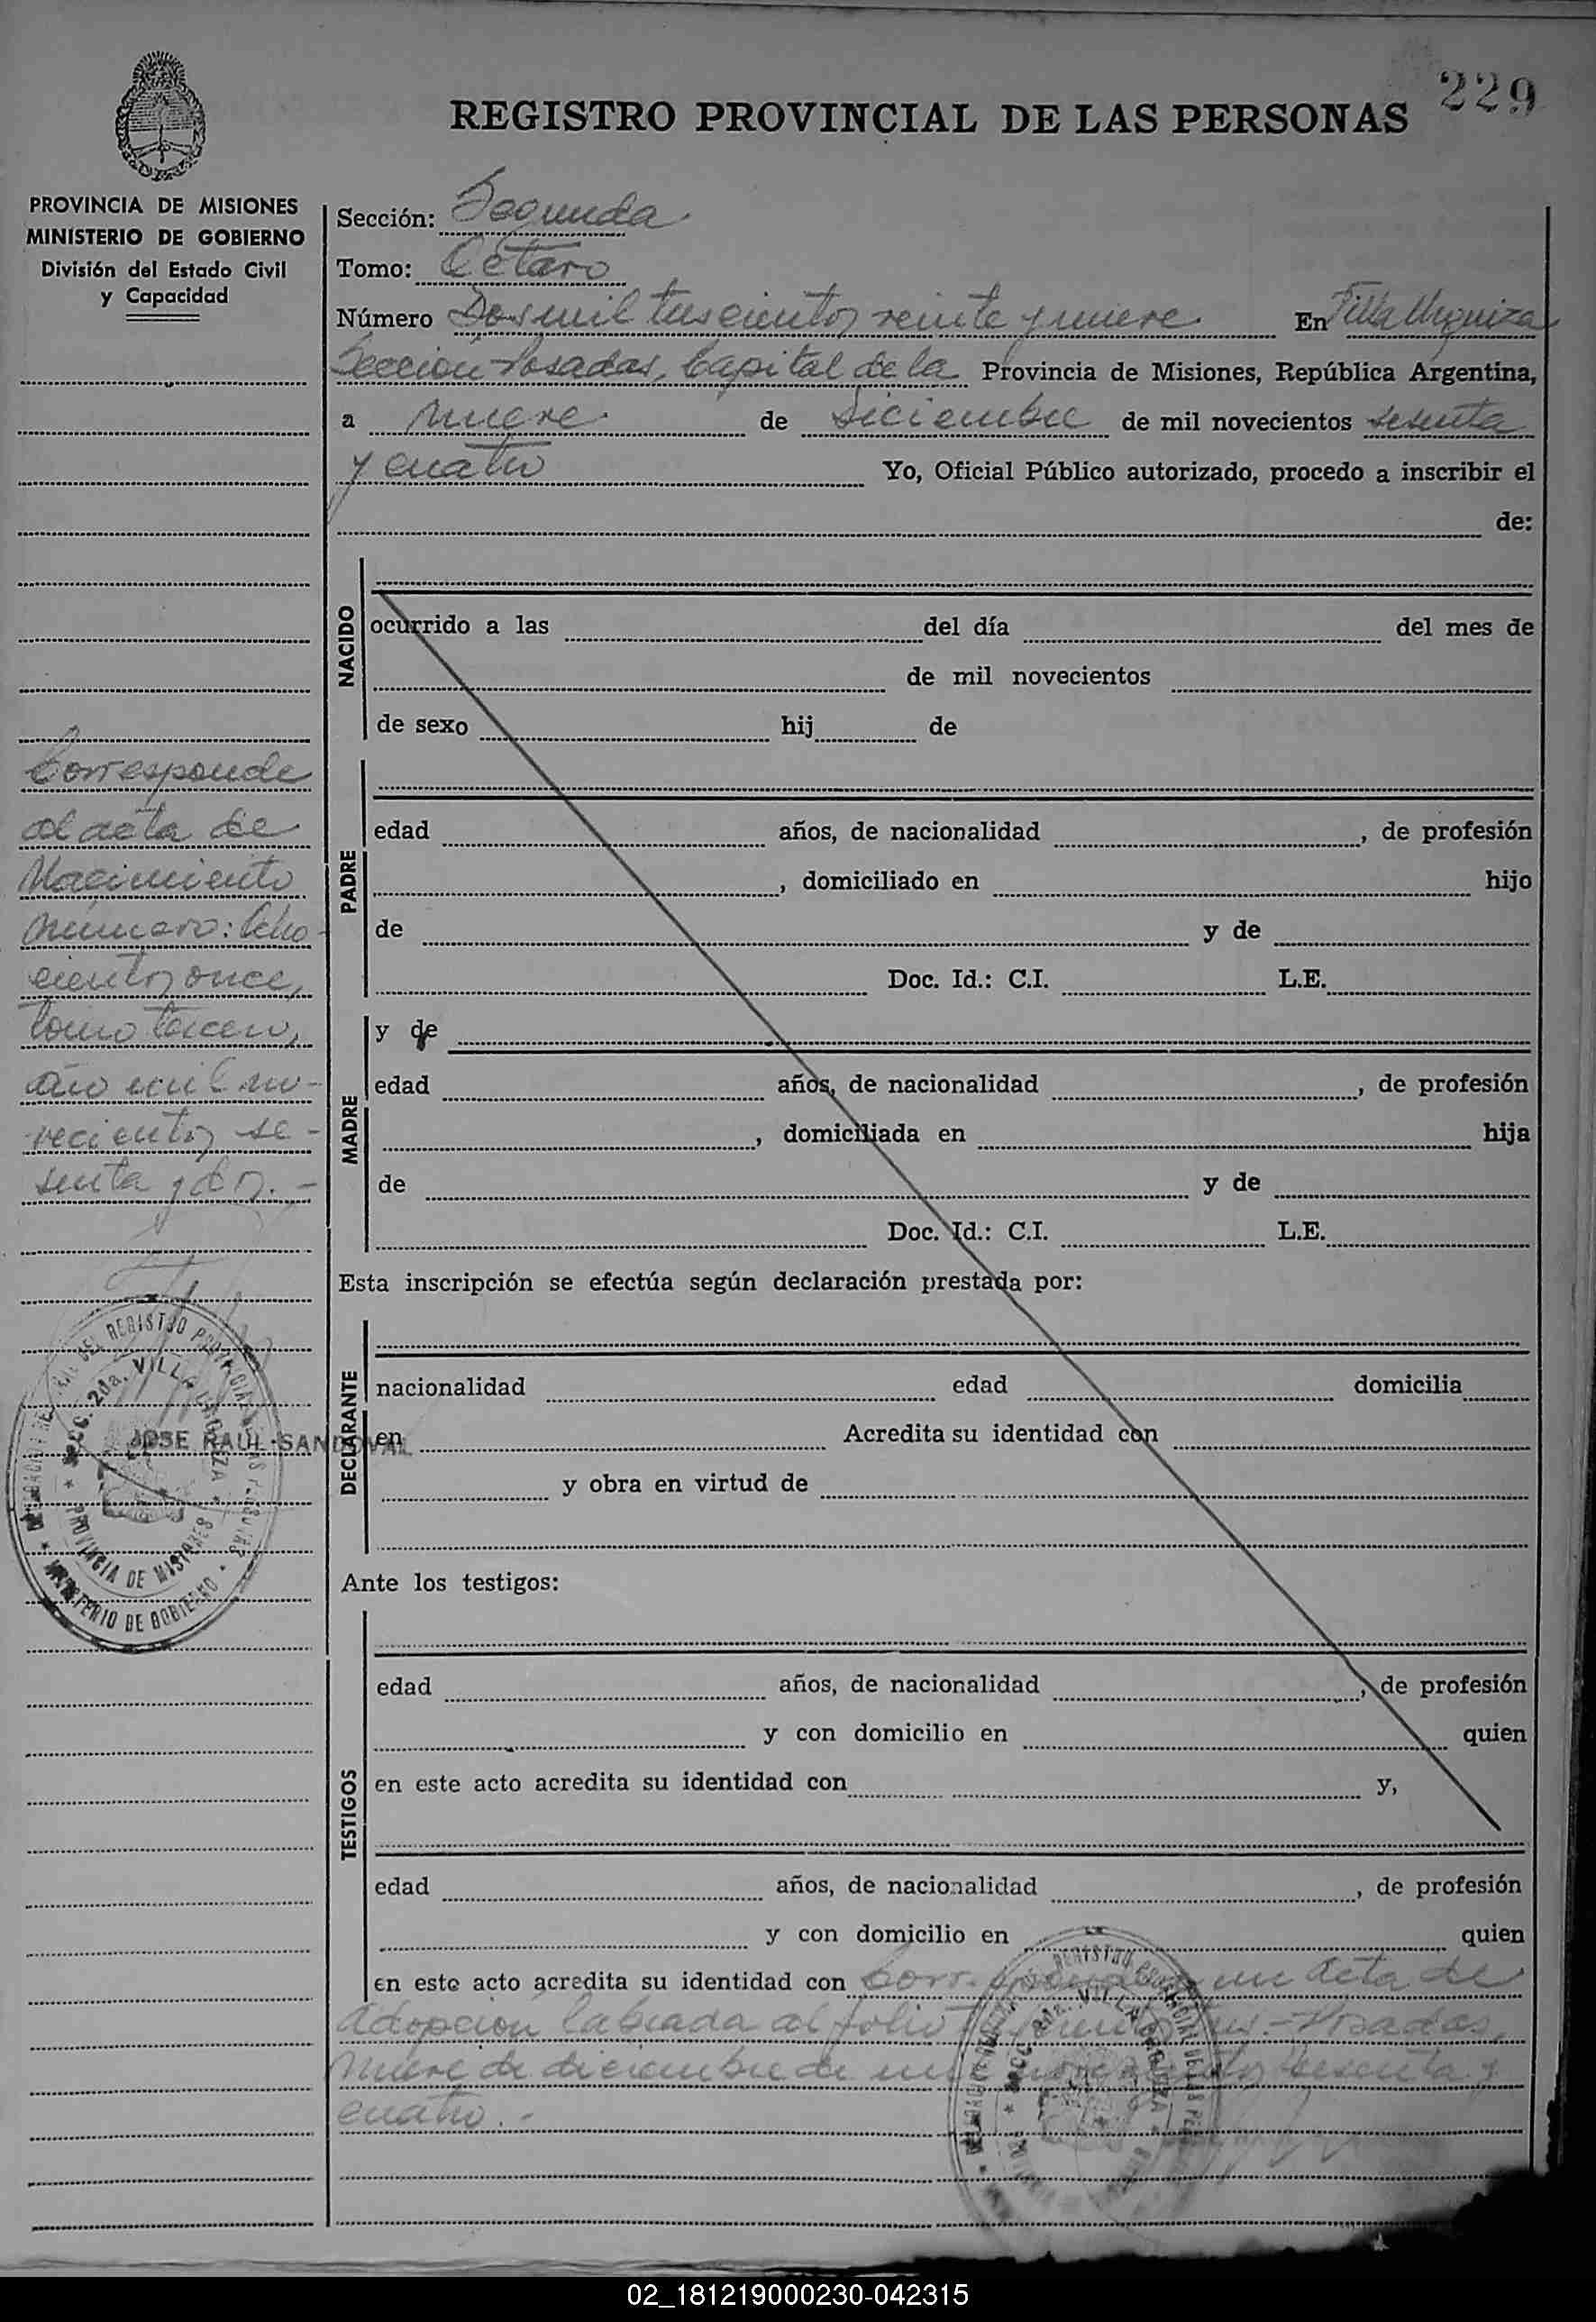 229
REGISTRO PROVINCIAL DE LAS PERSONAS
PROVINCIA DE MISIONES
MINISTERIO DE GOBIERNO
División del Estado Civil
y Capacidad
Sección: Segunda
Tomo: Octavo
Número Dos mil trescientos veinte y nueve En Villa Urquiza
Sección Posadas, Capital de la Provincia de Misiones, República Argentina,
a nueve de Diciembre de mil novecientos sesenta
y cuatro Yo, Oficial Público autorizado, procedo a inscribir el
de:
NACIDO
ocurrido a las del día del mes de
de mil novecientos
de sexo hij de
PADRE
edad años, de nacionalidad , de profesión
, domiciliado en hijo
de y de
Doc. Id.: C.I. L.E.
MADRE
y de
edad años, de nacionalidad , de profesión
, domiciliada en hija
de y de
Doc. Id.: C.I. L.E.
Esta inscripción se efectúa según declaración prestada por:
DECLARANTE
nacionalidad edad domicilia
en Acredita su identidad con
y obra en virtud de
Ante los testigos:
TESTIGOS
edad años, de nacionalidad , de profesión
y con domicilio en quien
en este acto acredita su identidad con y,
edad años, de nacionalidad , de profesión
y con domicilio en quien
en este acto acredita su identidad con un acta de
adopción labrada al folio Posadas,
nueve de diciembre de sesenta y
cuatro.-
Corresponde
al acta de
Nacimiento
número: Ocho
cientos once,
tomo tercero,
año mil no-
vecientos se-
senta y dos.-
DEL REGISTRO PROVINCIAL DE LAS PERSONAS
SECC. 2da. VILLA URQUIZA
PROVINCIA DE MISIONES
MINISTERIO DE GOBIERNO
JOSE RAUL SANDOVAL
02_181219000230-042315